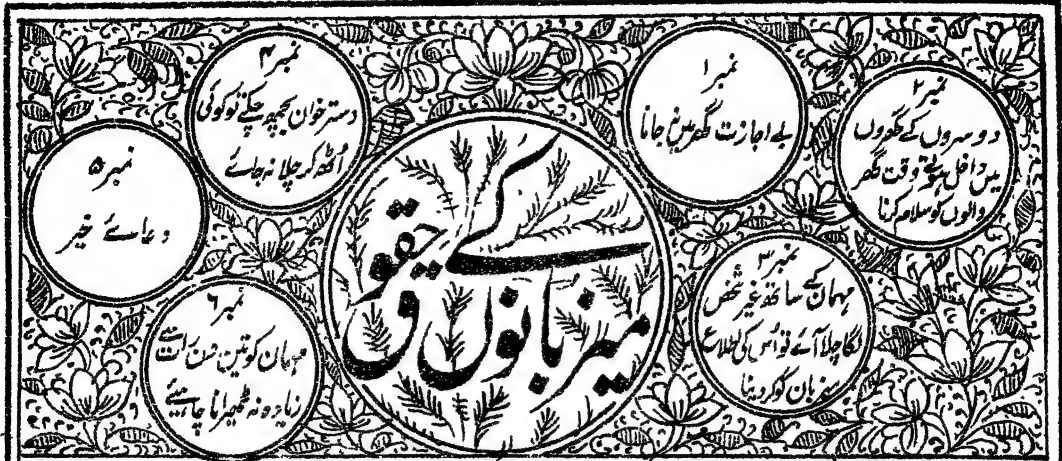 میزبانوں کے حقوق
نمبر ۱
بے اجازت گھر میں نہ جانا
نمبر ۲
دوسروں کے گھروں
میں داخل ہوتے وقت گھر
والوں کو سلام کرنا
نمبر ۳
مہمان کے ساتھ غیر شخص
لگا چلا آئے تو اُس کی اطلاع
میزبان کو کر دینا
نمبر ۴
دسترخوان بچھ چکے تو کوئی
اُٹھ کر چلا نہ جائے
نمبر ۵
دعائے خیر
نمبر ۶
مہمان کو تین دن رات سے
زیادہ نہ ٹھیرانا چاہیئے